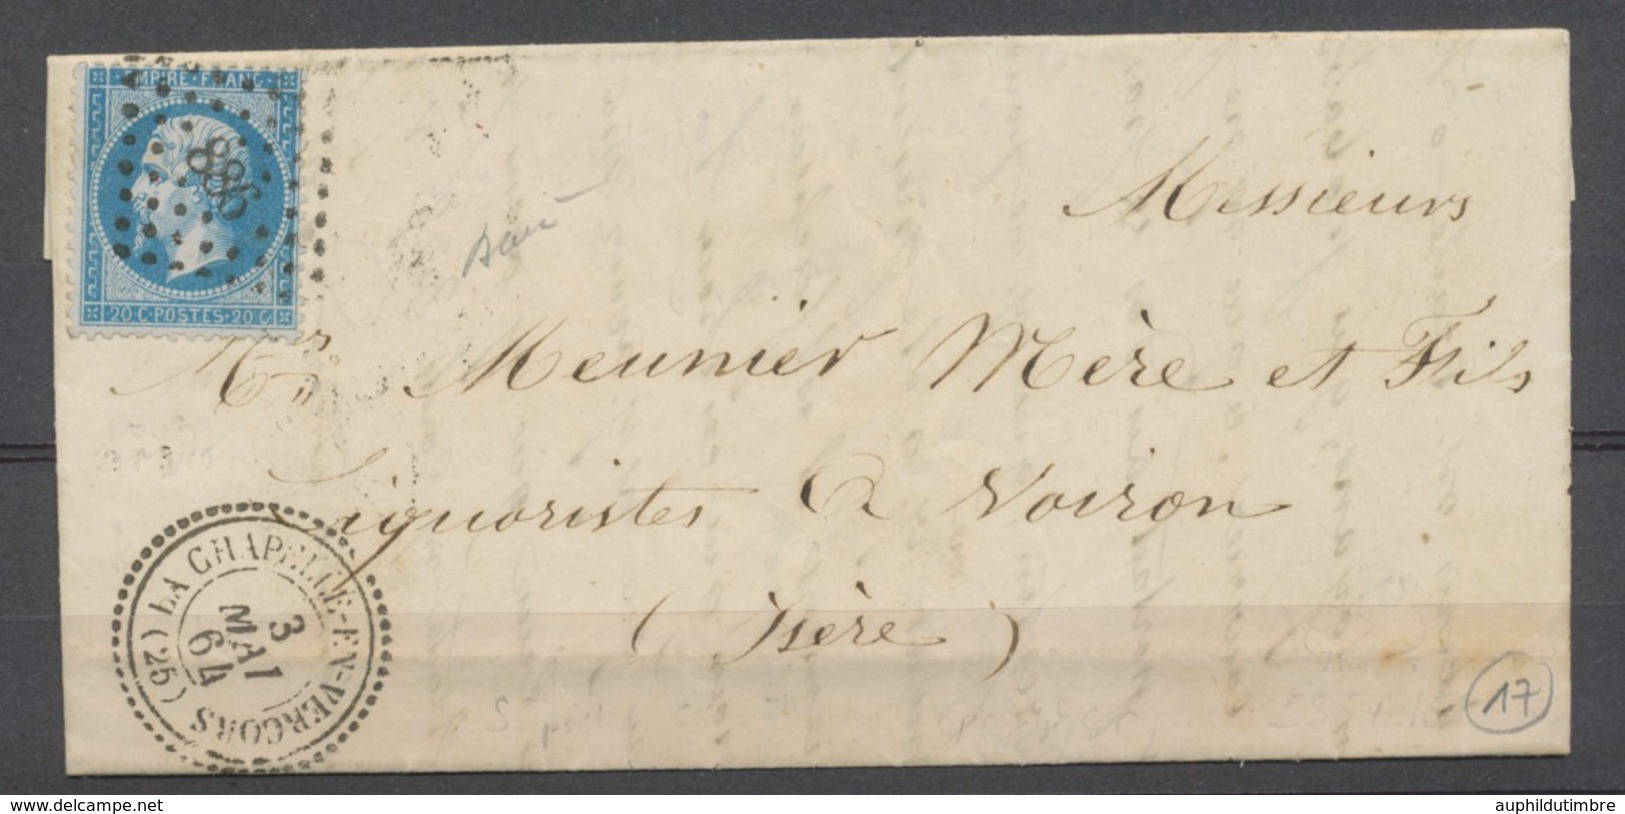 EMPIRE·FRANC·
886
20 C·POSTES·20 C
Messieurs
Mrs Meunier Mère et Fils
Liquoristes à Voiron
(Isère)
(25) LA CHAPELLE-EN-VERCORS
3
MAI
64
17
www.delcampe.net
auphildutimbre